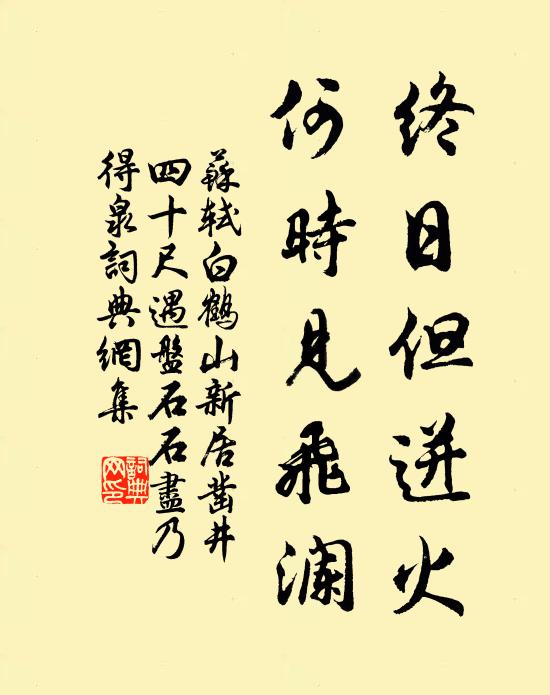 終日但迸火
何時見飛瀾
蘇軾白鶴山新居鑿井
四十尺遇盤石石盡乃
得泉詞典網集
詞典
网印